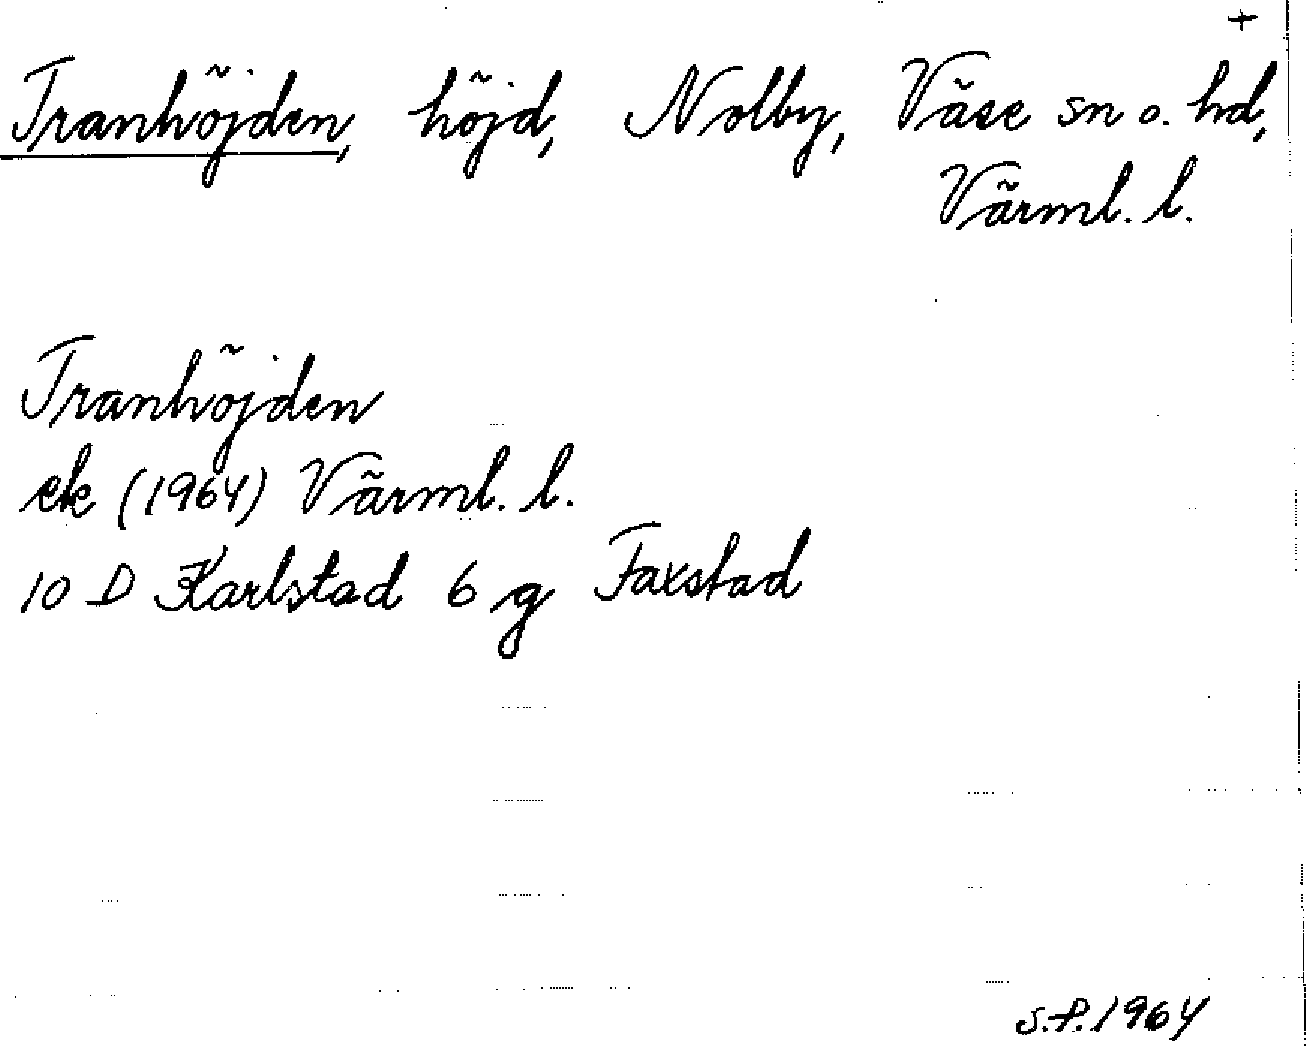 +
Tranhöjden, höjd, Nolby, Väse sn o. hd,
Värml. l.
Tranhöjden
ek (1964) Värml. l.
10 D Karlstad 6 g Faxstad
S.P. 1964